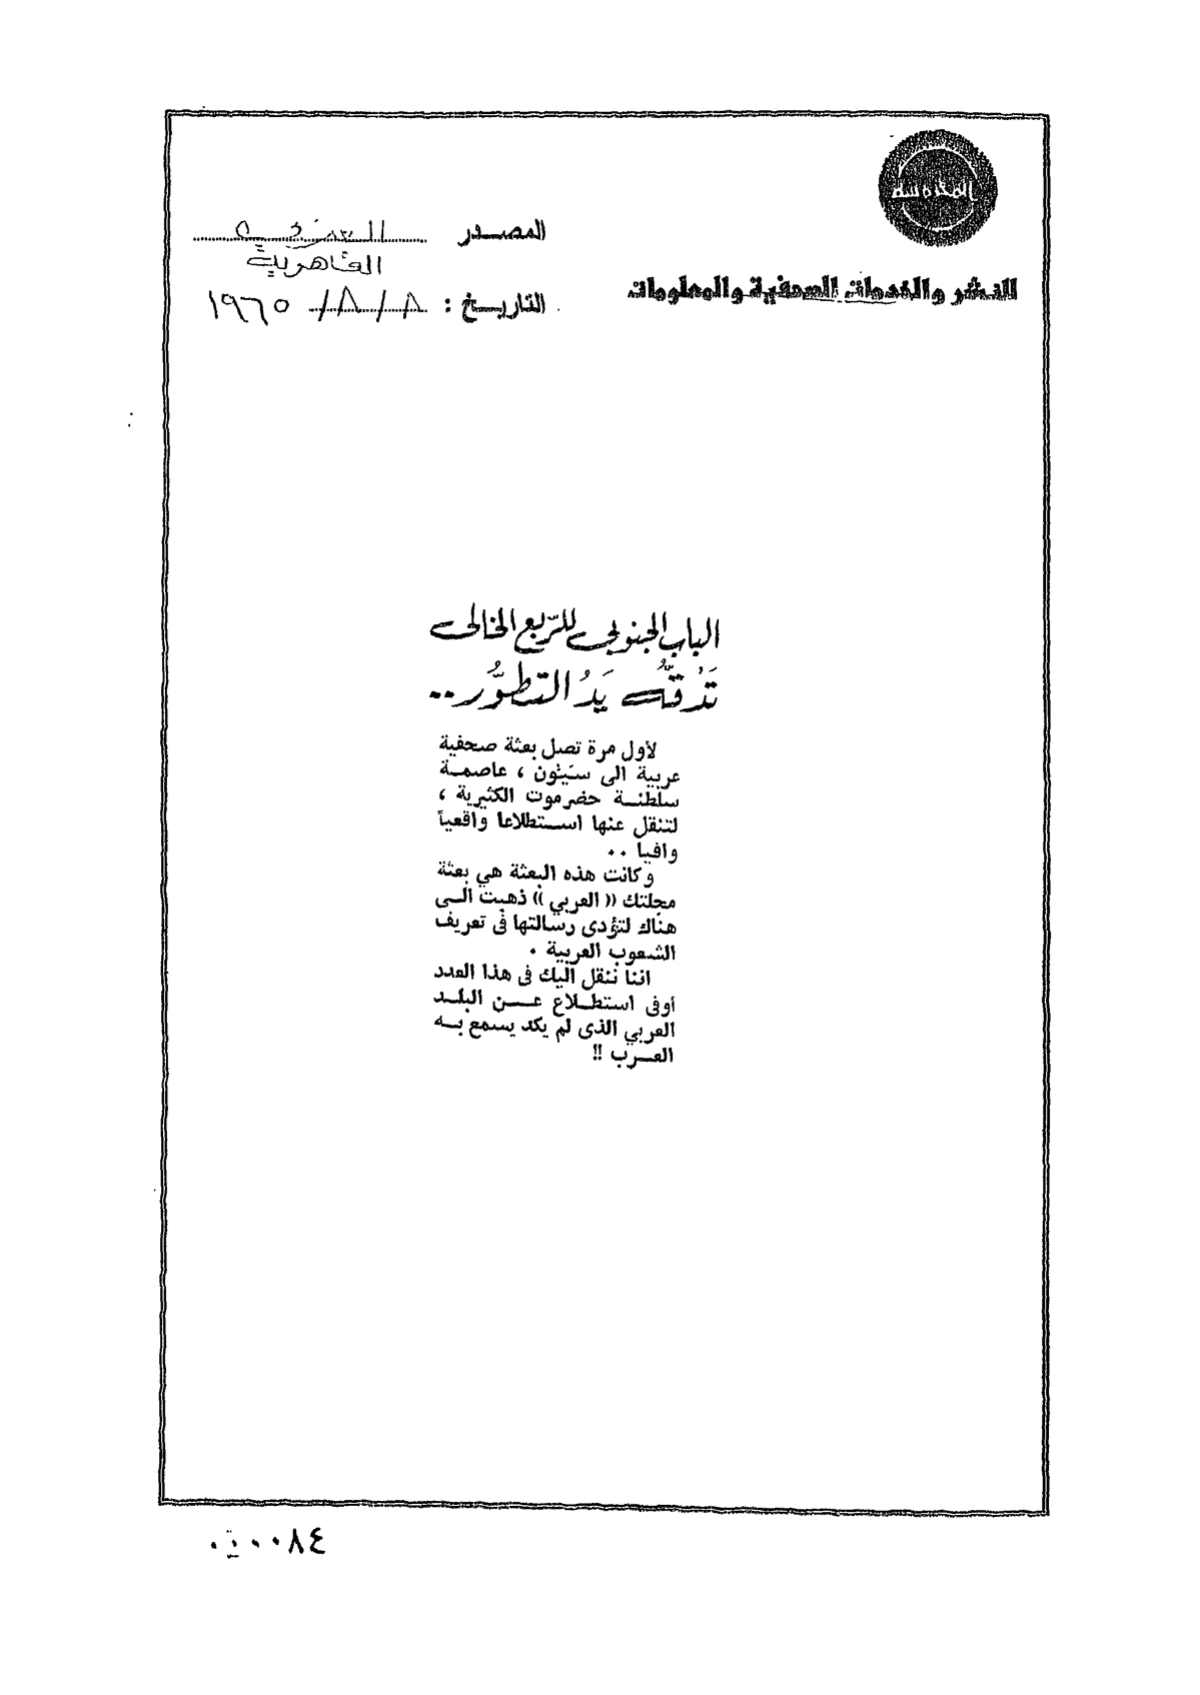 المحروسة
للنشر والخدمات الصحفية والمعلومات
المصدر
القاهرية
التاريخ : ٨/٨/١٩٦٥
الباب الجنوبي للربع الخالى
تَدُقّهُ يَدُ التطوُّر..
لأول مرة تصل بعثة صحفية
عربية الى سيئون ، عاصمة
سلطنة حضرموت الكثيرية ،
لتنقل عنها استطلاعا واقعياً
وافيا ..
وكانت هذه البعثة هي بعثة
مجلتك (( العربي )) ذهبت الى
هناك لتؤدى رسالتها فى تعريف
الشعوب العربية .
اننا ننقل اليك فى هذا العدد
أوفى استطلاع عن البلد
العربي الذى لم يكد يسمع به
العرب !!